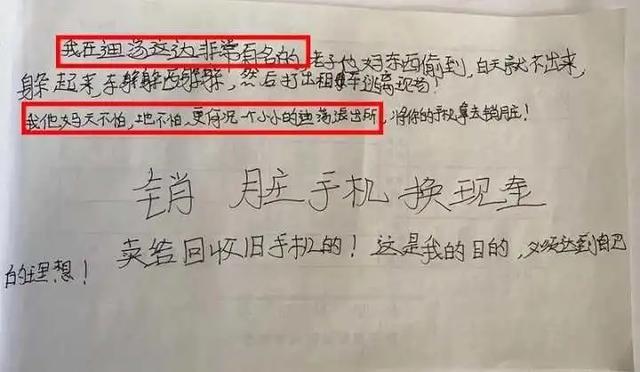 我在迪荡这边非常有名的,老子他妈东西偷到,白天就不出来,
躲起来,东躲躲西躲躲,然后打出租车逃离现场!
我他妈天不怕,地不怕,更何况一个小小的迪荡派出所,将你的手机拿去销脏!
销 脏手机 换现金
卖给回收旧手机的!这是我的目的,必须达到自己
的理想!